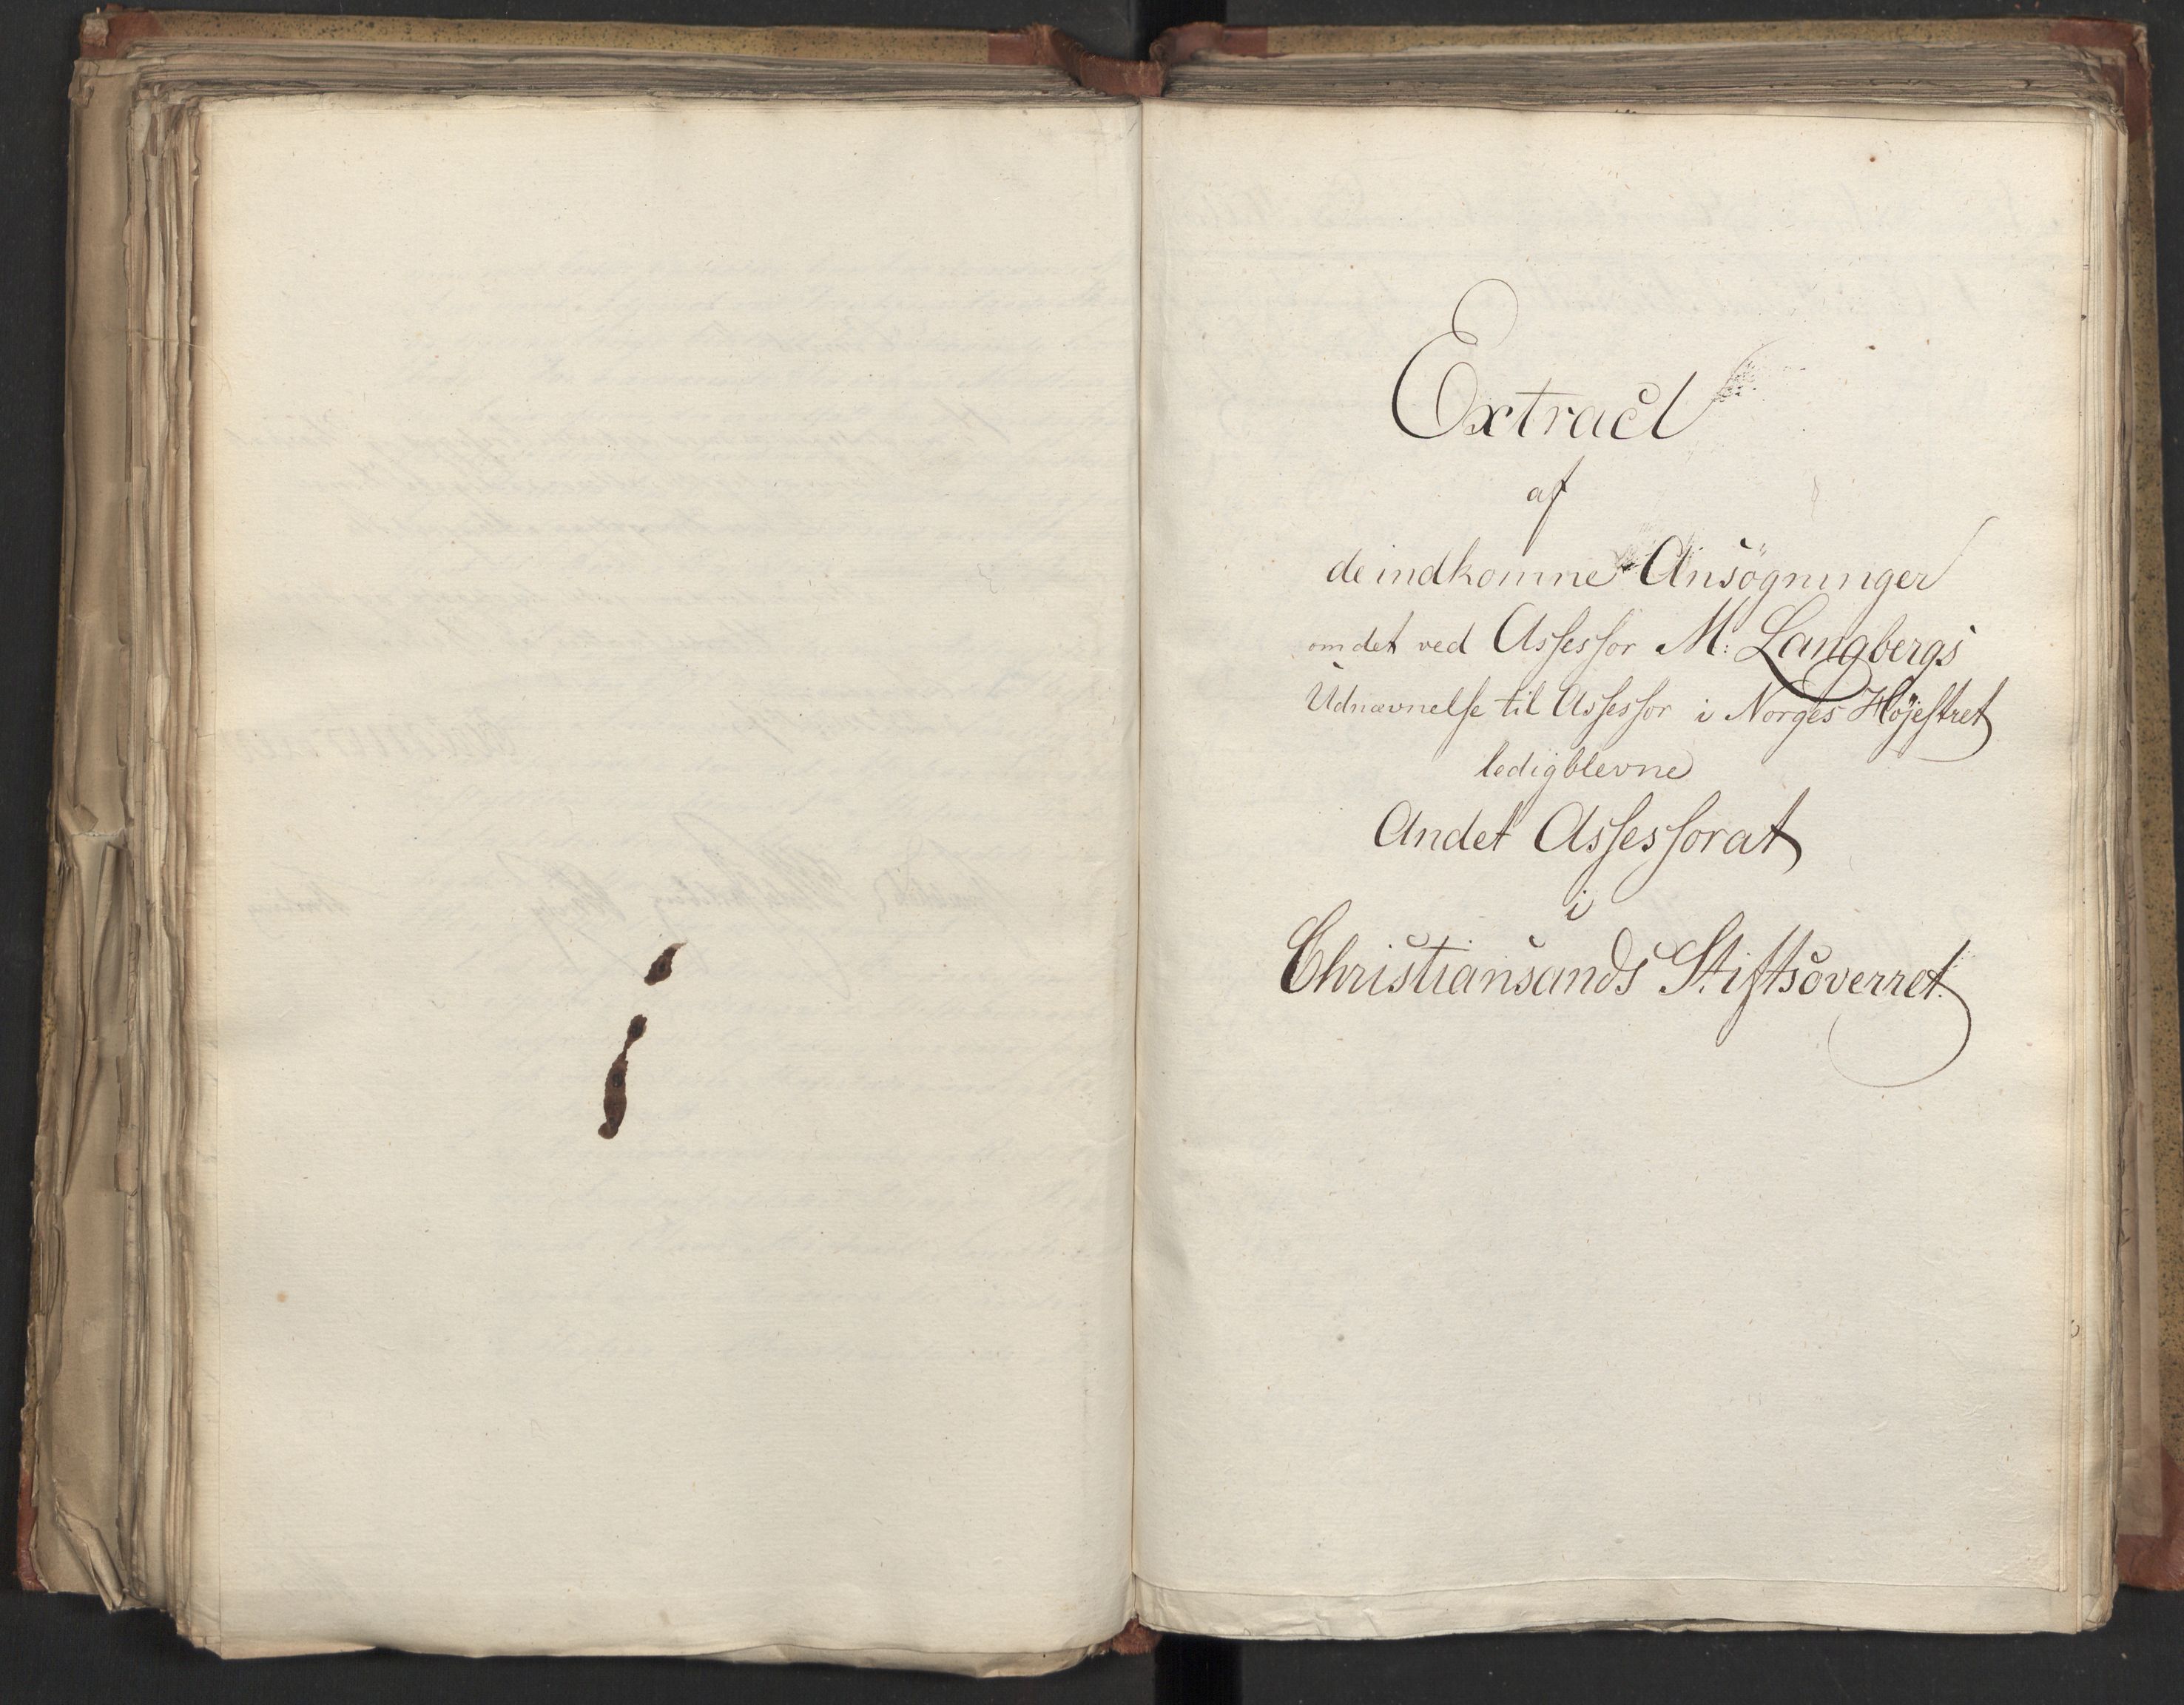 Extract
af
de indkomne Ansögninger
om det ved Assessor M: Langbergs
Udnævnelse til Assessor i Norges Höjestret
ledigblevne
Andet Assessorat
i
Christiansands Stiftsoverret.